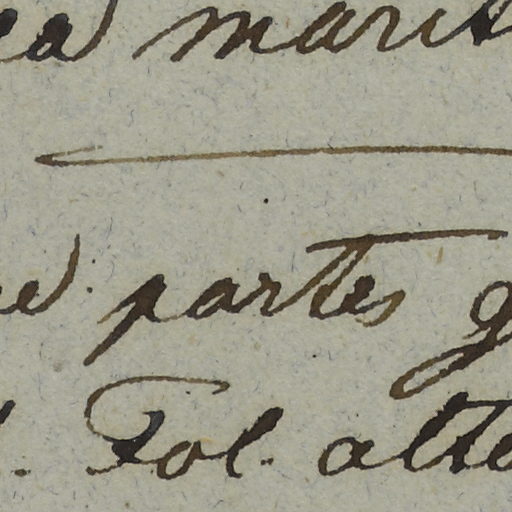 ea marit
partes g
Fol. alte